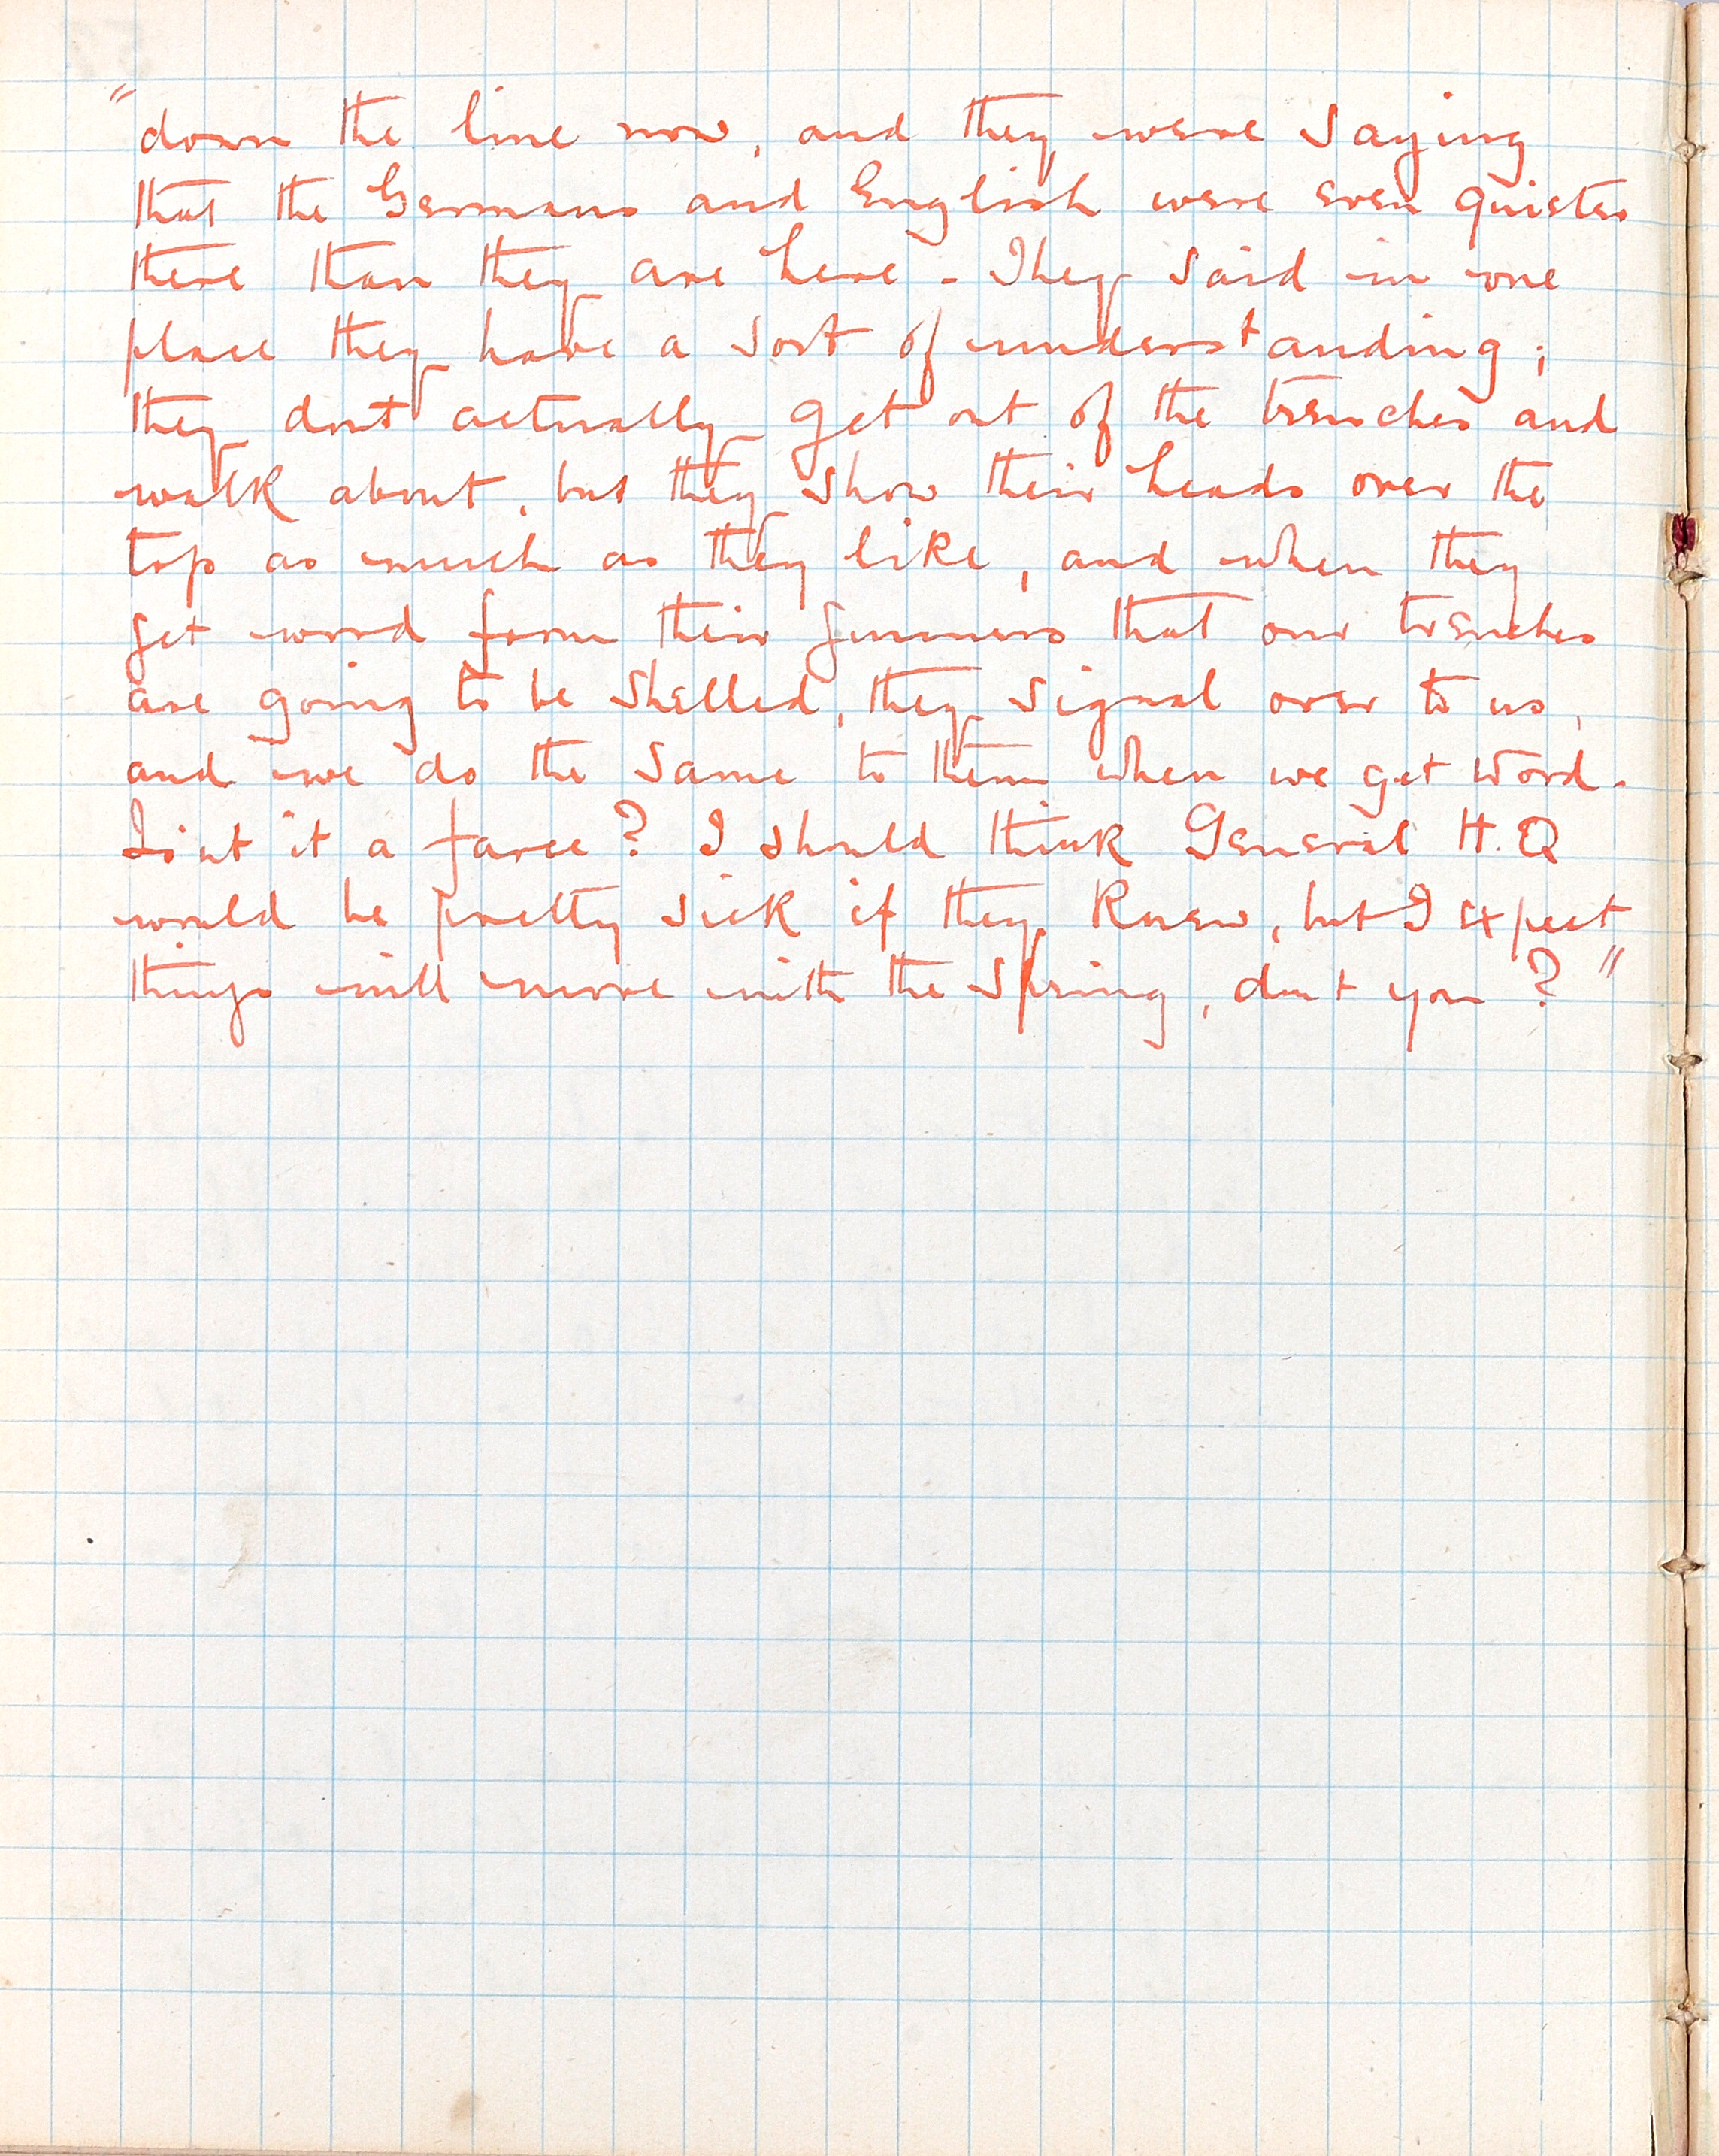 "down the line now, and they were saying
that the Germans and English were even quieter
there than they are here - They said in one
place they have a sort of understanding;
they dont actually get out of the trenches and
walk about, but they show their heads over the
top as much as they like, and when they
get word from their gunners that our trenches
are going to be shelled, they signal over to us,
and we do the same to them when we get word.
Isint it a farce? I should think General H.Q
would be pretty sick if they knew, but I expect
things will move with the Spring, dont you?"